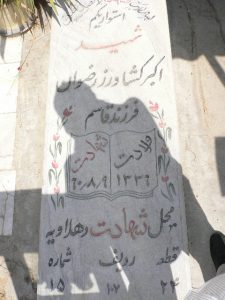 استوار یکم
شهید
اکبر کشاورز رضوان
فرزند قاسم
ولادت شهادت
۱۳۳۶ ۶۰/۸/۹
محل شهادت دهلاویه
قطعه ردیف شماره
۲۴ ۱۲ ۱۵